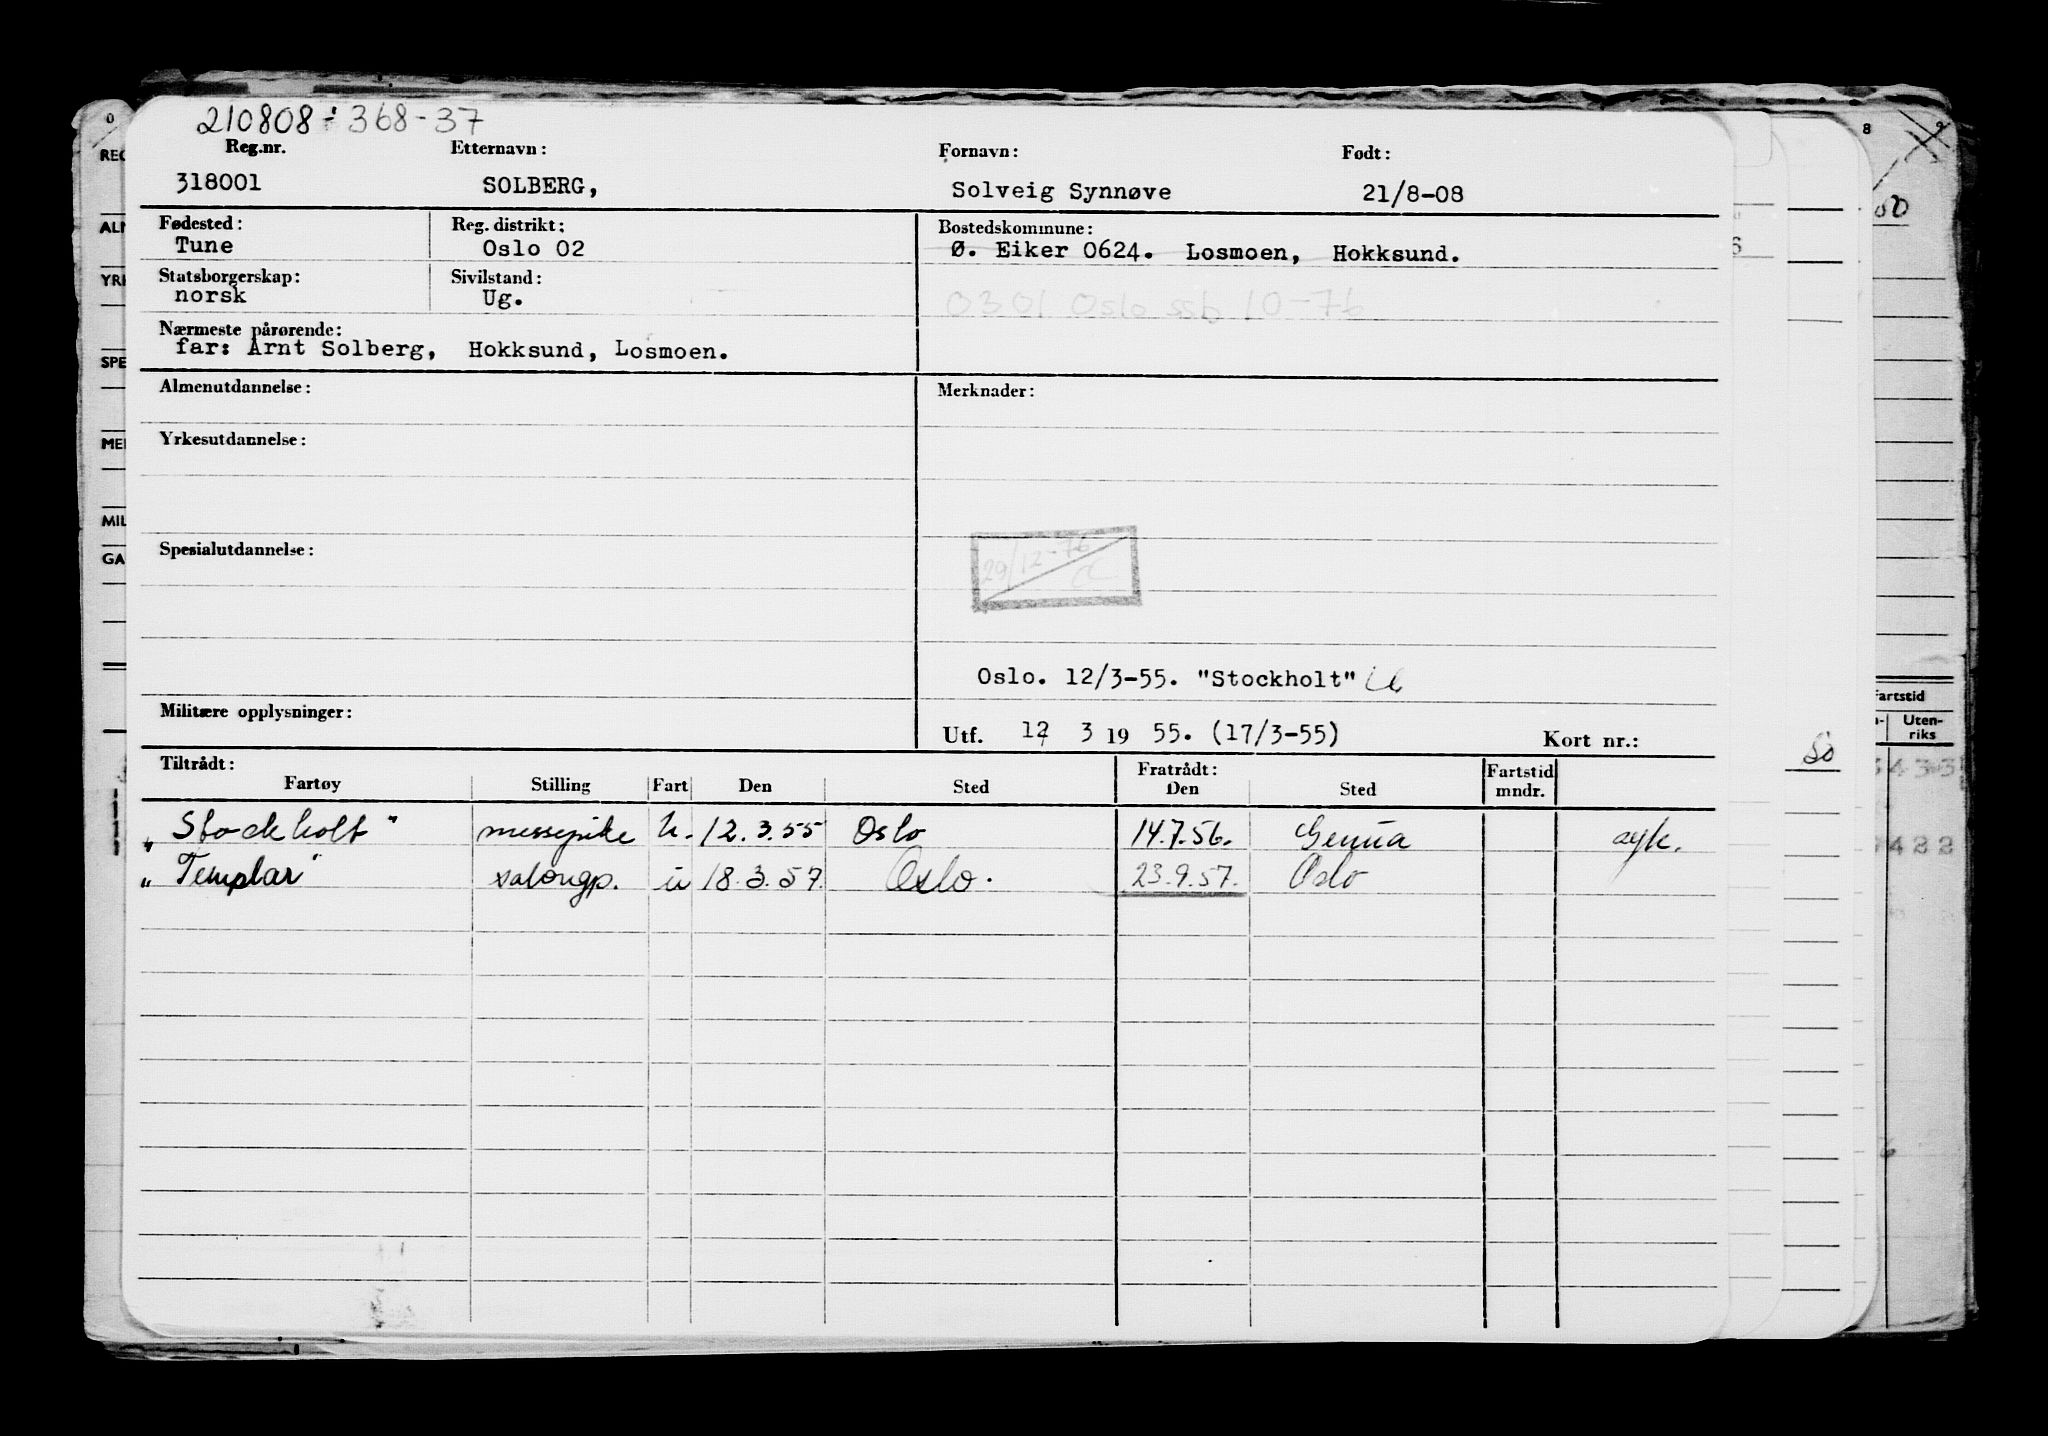 210808-368-37
Reg.nr. Etternavn: Fornavn: Født:
318001 SOLBERG, Solveig Synnøve 21/8-08
Fødested: Reg. distrikt: Bostedskommune:
Tune Oslo 02 Ø. Eiker 0624. Losmoen, Hokksund.
Statsborgerskap: Sivilstand:
norsk Ug.
0301 Oslo ssb 10-76
Nærmeste pårørende:
far: Arnt Solberg, Hokksund, Losmoen.
Almenutdannelse: Merknader:
Yrkesutdannelse:
Spesialutdannelse:
29/12-76
Oslo. 12/3-55. "Stockholt"
Militære opplysninger:
Utf. 12 3 19 55. (17/3-55) Kort nr.:
Tiltrådt: Fratrådt: Fartstid
Fartøy Stilling Fart Den Sted Den Sted mndr.
"Stockholt" messepike u. 12.3.55 Oslo 14.7.56. Genua syk.
"Templar" salongp. u 18.3.57. Oslo. 23.9.57. Oslo
Fartstid
Uten-
riks